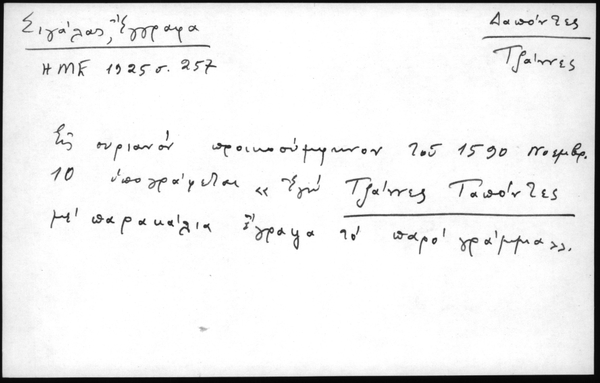 Σιγάλας, Ἔγγραφα
ΗΜΕ 1925 σ. 257
Δαπόντες
Τζάννες
Εἰς συριανόν προικοσύμφωνον τοῦ 1590 Νοεμβρ.
10 ὑπογράφεται « Ἐγώ Τζάννες Ταπόντες
μέ παρακάλια ἔγραψα τό παρό γράμμα».